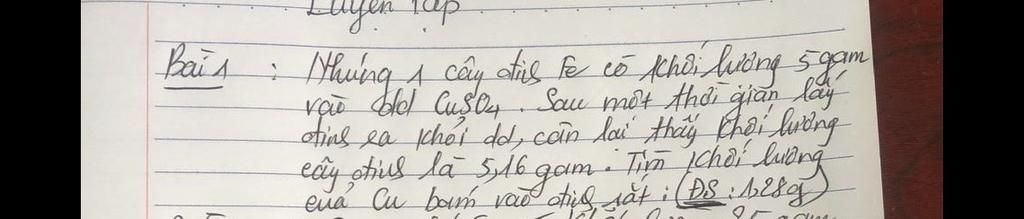 Luyện tập
Bài 1 : Nhúng 1 cây đinh Fe có khối lượng 5 gam
vào dd CuSO4. Sau một thời gian lấy
đinh ra khỏi dd, cân lại thấy khối lượng
cây đinh là 5,16 gam. Tìm khối lượng
của Cu bám vào đinh sắt : (ĐS : 1,28g)